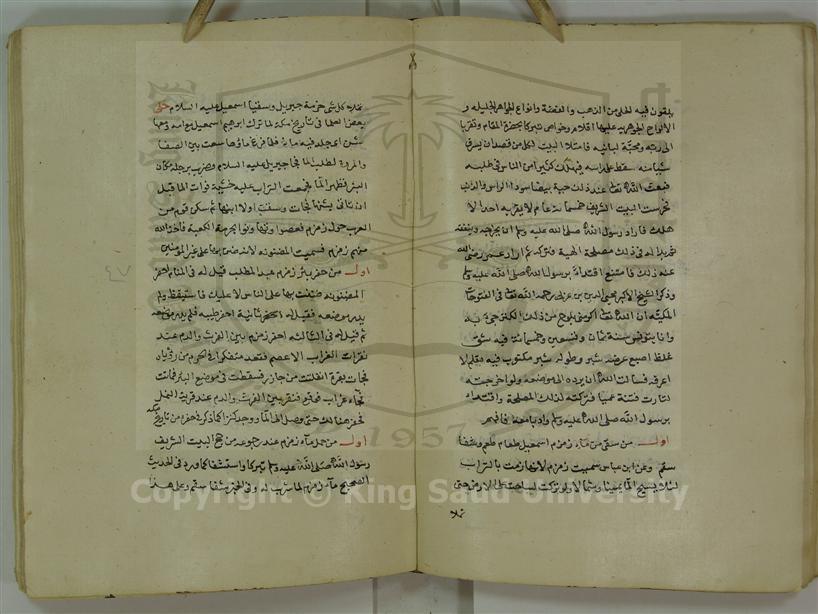 يلقون فيه الحلي من الذهب والفضة وانواع الجواهر الجليله و
الالواح الجوهريه عليها اقلام وخواص تبركا بحضرة المقام وتقربا
الى ربه ومحبة لبانيه فامتلا البيت لكل من قصد ان يسرق
شيا منه سقط على راسه فيهلك كثير من الناس في طلبه
فبعث الله تعالى عند ذلك حية بيضا سودا الراس والذنب
فحرست البيت الشريف خمسمائة عام لا يقربه احد الا
هلك فاراد رسول الله صلى الله عليه وسلم ان يخرجه وينفقه
ثم بدا له في ذلك مصلحة فتركه ثم اراد عمر رضي الله
عنه ذلك فامتنع اقتداء برسول الله صلى الله عليه وسلم
وذكر الشيخ الاكبر محيي الدين بن عربي رحمه الله تعالى في الفتوحات
المكيه ان الله تعالى اكرمني بلوح من ذلك الكنز جيء به
وانا بتونس سنة ثمان وتسعين وخمسمائة فيه شق
غلظ اصبع عرضه شبر وطوله شبر مكتوب فيه بقلم لا
اعرفه فسالت الله ان يرده الى موضعه ولو اخرجته
لثارت فتنة عميا فتركته لذلك المصلحة واقتداء
برسول الله صلى الله عليه وسلم وادبا معه فافهم
اول من سقى من ماء زمزم اسمعيل طعام طعم وشفا
سقم وعن ابن عباس سميت زمزم لانها زمت بالتراب
لئلا يسيح الماء يمينا وشمالا ولو تركت لساحت على الارض حتى
تملا
تملاء كل شي حرمة جبريل وسقيا اسمعيل عليه السلام حكى
بعض العلما في تاريخ مكة لما ترك ابراهيم اسمعيل وامه ومعها
شن اي جلد فيه ماء فلما فرغ ماؤها سعت بين الصفا
والمروة لطلب الماء فجا جبريل عليه السلام وضرب برجله مكان
البئر فظهر الماء فجمعت التراب عليه خشية فوات الماء قبل
ان تاتي بشنها فجات وسقت اولا ابنها ثم سكن قوم من
العرب حول زمزم فعصوا وزنوا ونووا بحرمة الكعبة فاخذ الله
منهم زمزم فسميت المضنونه لانه ضن بها على غير المؤمنين
اول من حفر بئر زمزم عبد المطلب قيل له في المنام احفر
المضنونه ضننت بها على الناس الا عليك فاستيقظ ولم
يدر موضعه فقيل له احفر ثانية احفر طيبه فلم يدر موضعه
ثم قيل له في الثالثه احفر زمزم بين الفرث والدم عند
نقرات الغراب الاعصم فقعد متفكرا في الحرم من روياه
فجات بقرة انفلتت من جازر فسقطت في موضع البئر فماتت
فجاء غراب فوقع فنقر بين الفرث والدم عند قرية النمل
فحفر هنالك حتى وصل الى الماء ووجد كنزا كما ذكر في حفره من تاريخ مكه
اول من حمل ماء زمزم عند رجوعه من حج البيت الشريف
رسول الله صلى الله عليه وسلم تبركا واستشفا كما ورد في الحديث
الصحيح ماء زمزم لما شرب له وفي الخبر شفا سقم وعلى هذا
٤٧
Copyright © King Saud University
1957